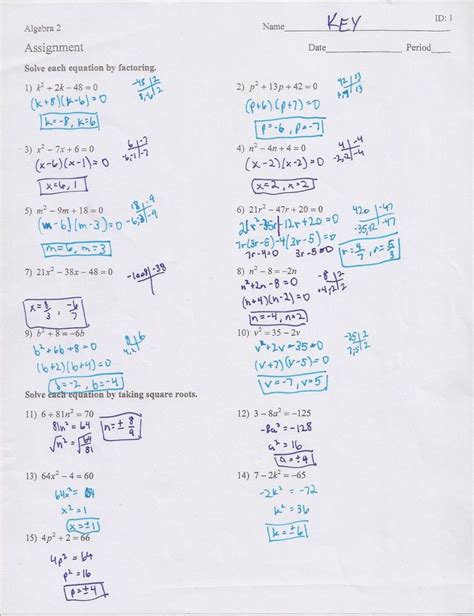 ID: 1
Algebra 2 Name KEY
Assignment Date Period
Solve each equation by factoring.
1) k² + 2k − 48 = 0 -48 | 2
(k+8)(k-6)=0 8,-6 | 2
k=-8, k=6
2) p² + 13p + 42 = 0 42 | 13
(p+6)(p+7)=0
p=-6, p=-7
3) x² − 7x + 6 = 0 6 | -7
(x-6)(x-1)=0 -6,-1 | -7
x=6, 1
4) n² − 4n + 4 = 0 4 | -4
(x-2)(x-2)=0 -2,-2 | -4
x=2, x=2
5) m² − 9m + 18 = 0 18 | -9
(m-6)(m-3)=0 -6,-3 | -9
m=6, m=3
6) 21r² − 47r + 20 = 0 420 | -47
21r²-35r-12r+20=0 -35,-12 | -47
7r(3r-5)-4(3r-5)=0
7r-4=0 3r-5=0
r=4/7, r=5/3
7) 21x² − 38x − 48 = 0 -1008 | -38
x=8/3, -6/7
8) n² − 8 = −2n -8 | 2
n²+2n-8=0
(n+4)(n-2)=0
n=-4, n=2
9) b² + 8 = −6b 8 | 6
b²+6b+8=0 4,2
(b+2)(b+4)=0
b=-2, b=-4
10) v² = 35 − 2v -35 | 2
v²+2v-35=0 7,-5 | 2
(v+7)(v-5)=0
v=-7, v=5
Solve each equation by taking square roots.
11) 6 + 81n² = 70
81n²=64
√n²=√64/81
n=± 8/9
12) 3 − 8a² = −125
-8a²=-128
a²=16
a=±4
13) 64x² − 4 = 60
64x²=64
x²=1
x=±1
14) 7 − 2k² = −65
-2k²=-72
k²=36
k=±6
15) 4p² + 2 = 66
4p²=64
p²=16
p=±4